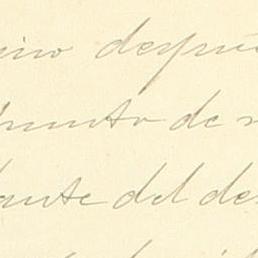 después
punto de
ante del de